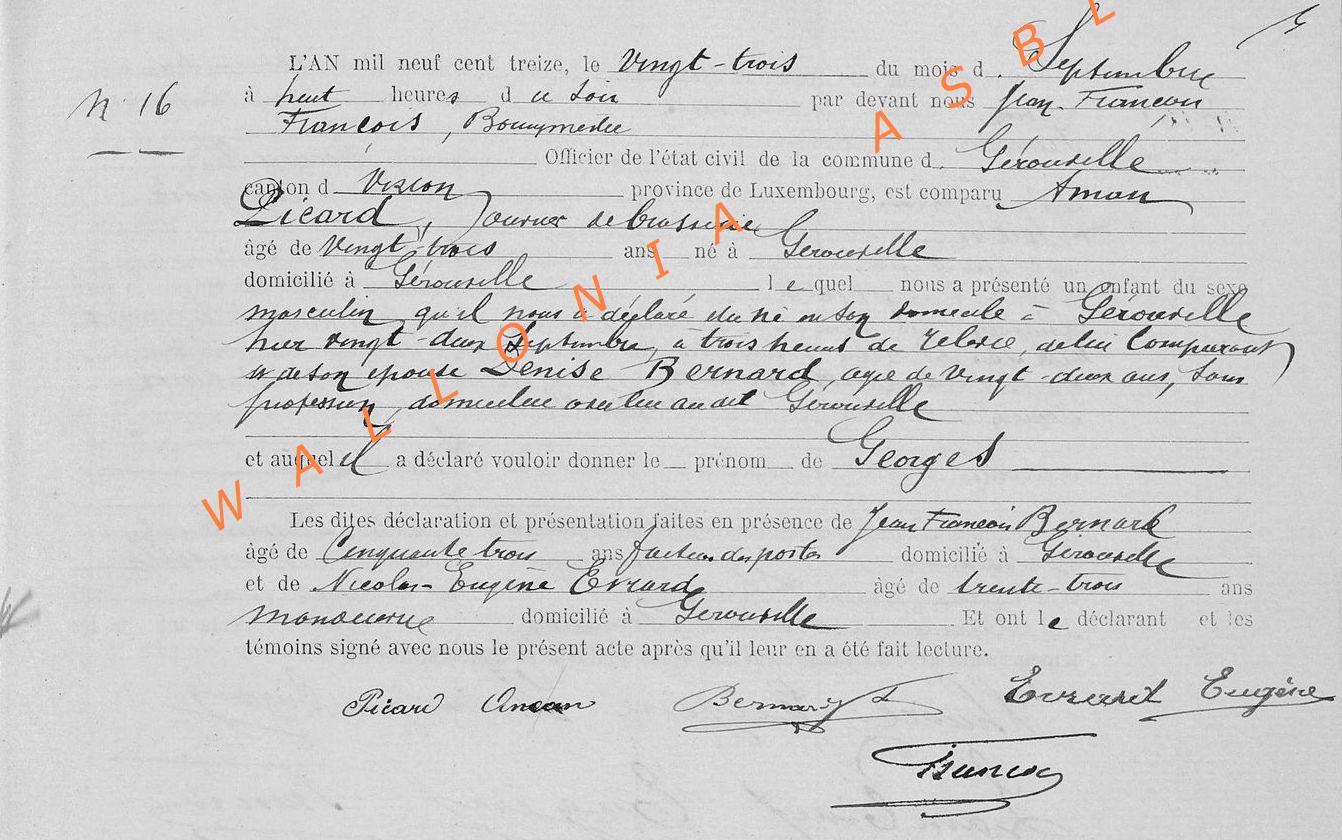 L'AN mil neuf cent treize, le Vingt-trois du mois d Septembre
N. 16
à huit heures d u soir par devant nous Jean-François
François, Bourgmestre
Officier de l'état civil de la commune d Gérouville
canton d Virton province de Luxembourg, est comparu
Picard, Ouvrier de brasserie
âgé de Vingt-trois ans né à Gérouville
domicilié à Gérouville l e quel nous a présenté un enfant du sexe
masculin qu'il nous a déclaré être né en son domicile à Gérouville
hier vingt-deux Septembre, à trois heures de relevée, de lui Comparant
et de son épouse Denise Bernard, agée de Vingt-deux ans, Sans
profession, domiciliée audit Gérouville
et auquel il a déclaré vouloir donner le prénom de Georges
Les dites déclaration et présentation faites en présence de Jean François Bernard
âgé de Cinquante trois ans facteur des postes domicilié à Gérouville
et de Nicolas-Eugène Evrard âgé de trente-trois ans
manoeuvre domicilié à Gérouville Et ont le déclarant et les
témoins signé avec nous le présent acte après qu'il leur en a été fait lecture.
Picard Bernard Evrard Eugène
François
WALLONIA ASBL